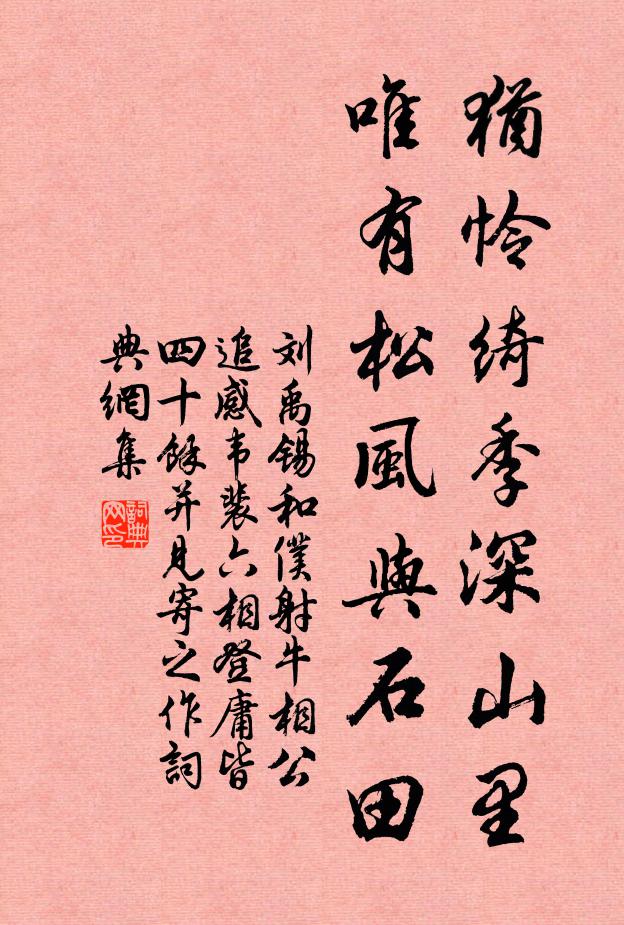 猶怜绮季深山里
唯有松風與石田
刘禹锡和僕射牛相公
追感韦裴六相登庸皆
四十餘并见寄之作詞
典網集
詞典网印